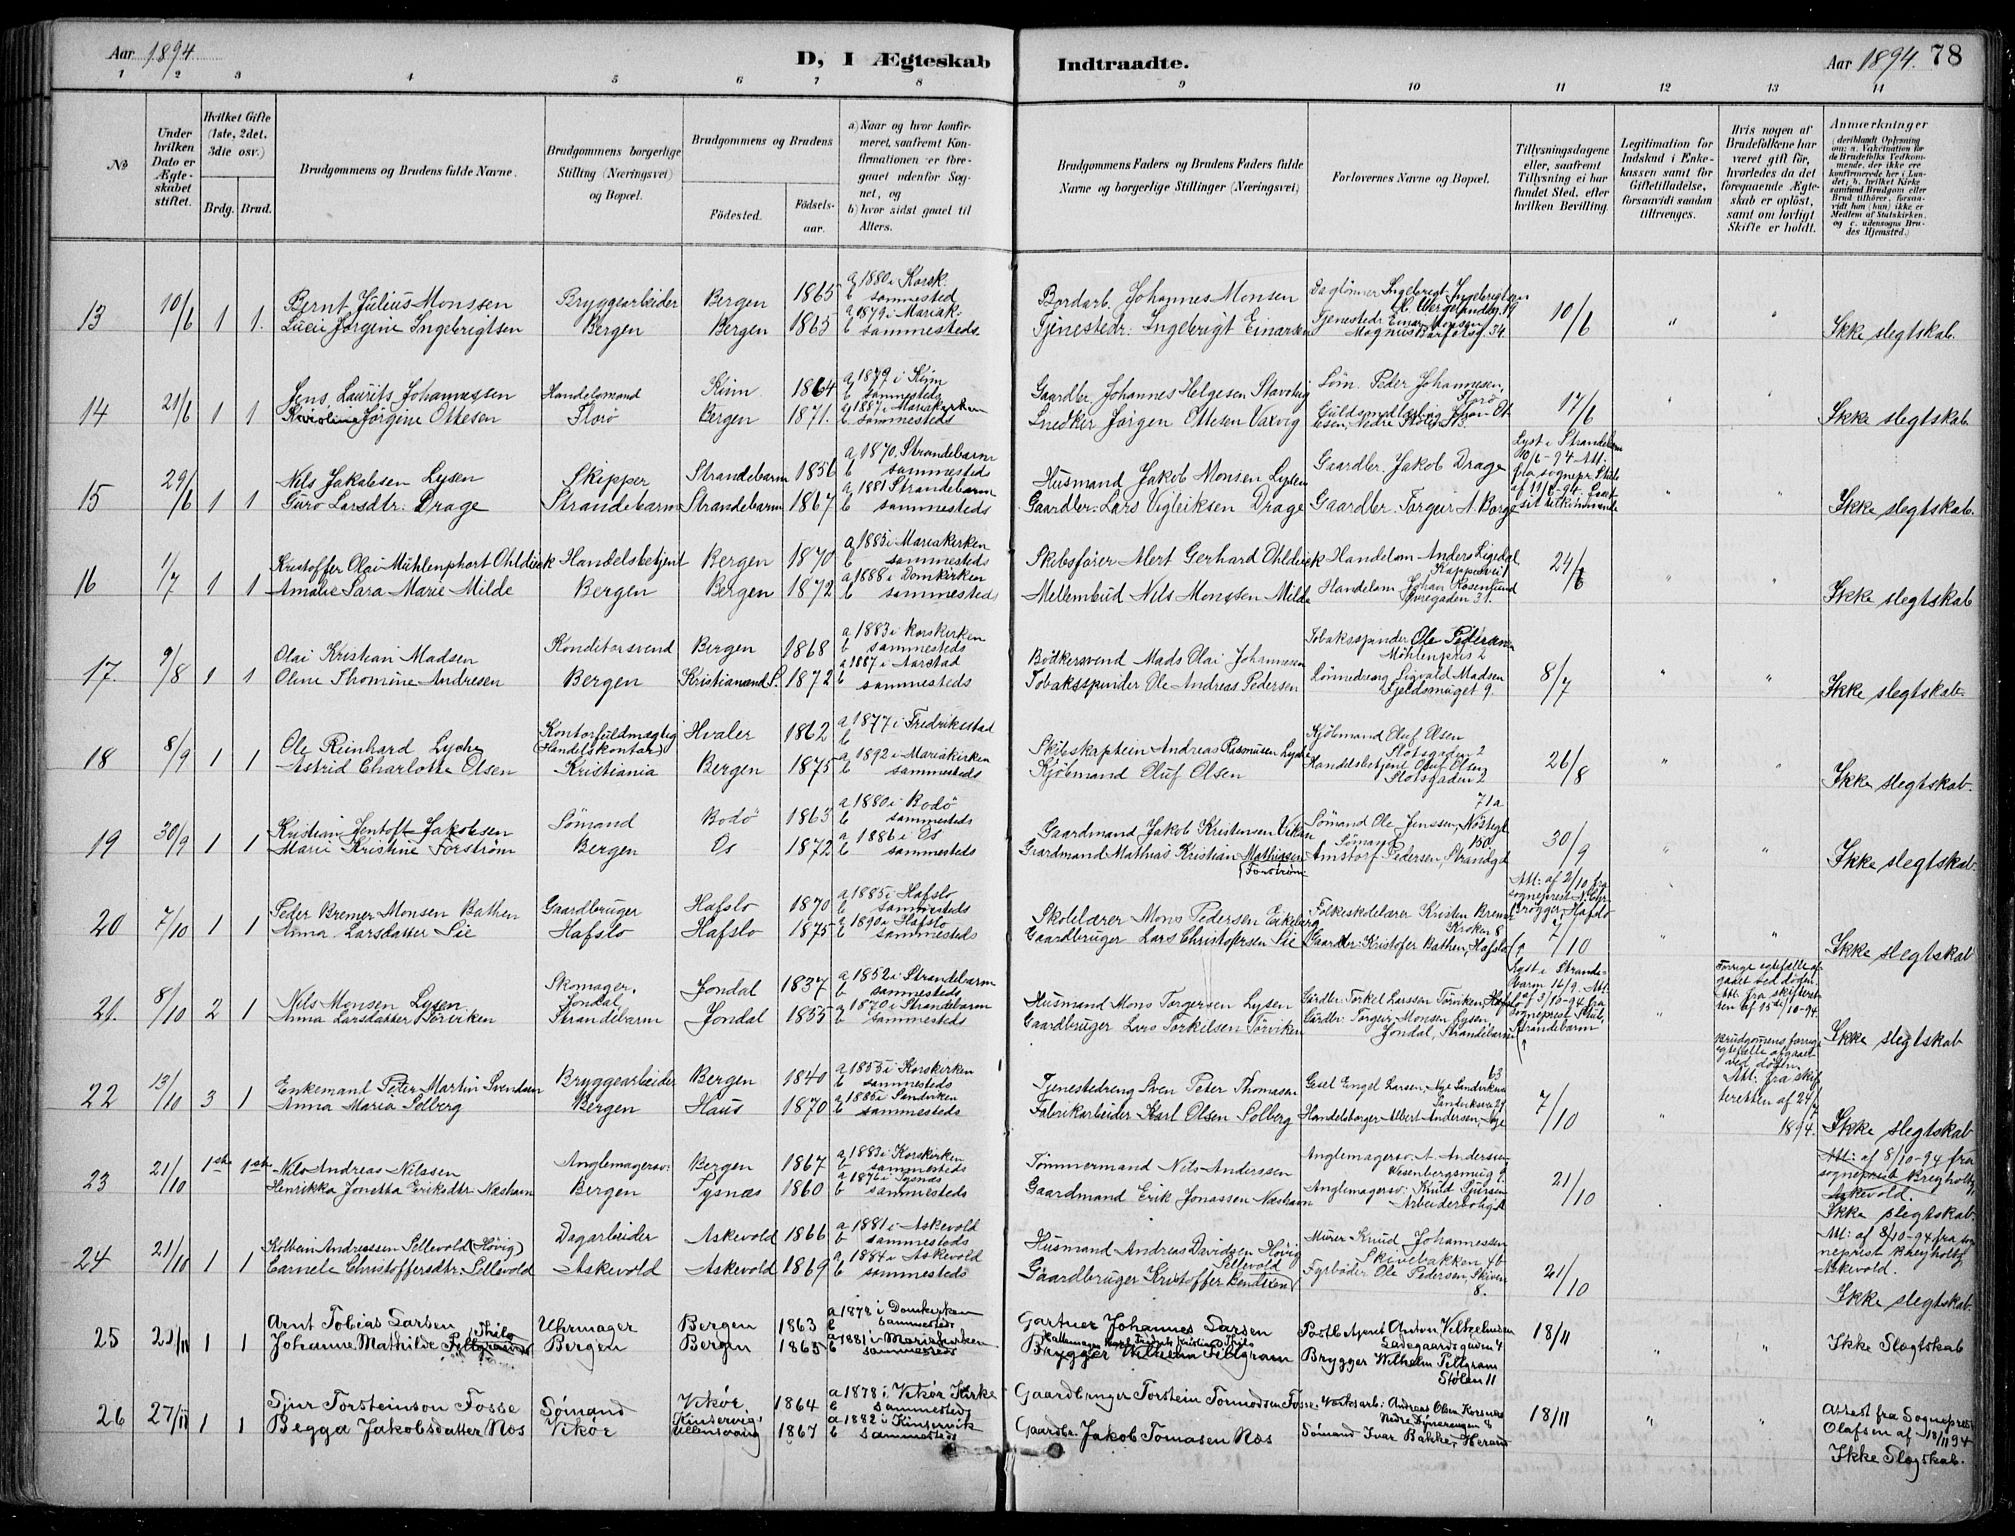 Aar 1894
D, I Ægteskab
Indtraadte.
Aar 1894. 78
1 2 3 4 5 6 7 8 9 10 11 12 13 14
No
Under hvilken Dato er Ægteskabet stiftet.
Hvilket Gifte (1ste, 2det, 3die osv.)
Brdg. Brud.
Brudgommens og Brudens fulde Navne.
Brudgommens borgerlige Stilling (Næringsvei) og Bopæl.
Brudgommens og Brudens
Födested.
Födselsaar.
a) Naar og hvor konfirmeret, saafremt Konfirmationen er foregaaet udenfor Sognet, og
b) hvor sidst gaaet til Alters.
Brudgommens Faders og Brudens Faders fulde Navne og borgerlige Stillinger (Næringsvei)
Forlovernes Navne og Bopæl.
Tillysningsdagene eller, saafremt Tillysning ei har fundet Sted, efter hvilken Bevilling.
Legitimation for Indskud i Enkekassen samt for Giftetilladelse, forsaavidt saadan tiltrænges.
Hvis nogen af Brudefolkene har været gift för, hvorledes da det foregaaende Ægteskab er oplöst, samt om lovligt Skifte er holdt.
Anmærkninger
13 10/6 1 1. Bernt Julius Monssen Bryggearbeider Bergen 1865 a 1880 i Korsk. b sammested Johannes Monsen 10/6 " "
Jørgine Ingebrigtsen Bergen Bergen 1865 a 1879 i Mariak. b sammesteds Tjenestedr. Ingebrigt Einarsen Magnus Barfotsg. 34. Ikke slegtskab.
14 21/6 1 1 Jens Laurits Johannessen Handelsmand Kinn 1864 a 1879 i Kinn b sammesteds Gaardbr. Johannes Helgesen Peder Johannesen, Florø 17/6
Jørgine Ottesen Florø Bergen 1871. a 1887 i Mariakirken b sammesteds Snedker Jørgen Ottesen Vaxvig Ikke slegtskab.
15 29/6 1 1 Nils Jakobsen Lysen Skipper Strandebarm 1856 a 1870 Strandebarm b sammesteds Husmand Jakob Monsen Lysen Gaardbr. Jakob Drage Lyst i Strandebarm
Guro Larsdtr. Drage Strandebarm Strandebarm 1867 a 1881 Strandebarm b sammesteds Gaardbr. Lars Vigleiksen Drage Gaardbr. Torgeir A. Borge Ikke slegtskab.
16 1/7 1 1 Kristoffer Olai Mühlenphort Ohldieck Handelsbetjent Bergen 1870 a 1885 i Mariakirken b sammesteds Skibsfører Alert Gerhard Ohldieck Handelsm Anders 24/6
Amalie Sara Marie Milde Bergen Bergen 1872 a 1888 i Domkirken b sammesteds Mellembud Nils Monssen Milde Handelsm Johan Rosenlund Øvregaden 31. Ikke slegtskab
17. 9/8 1 1 Olai Kristian Madsen Konditorsvend Bergen 1868 a 1883 i Korskirken b sammesteds Bødkersvend Mads Olai Johannesen Tobaksspinder Ole Pedersen Möhlenpris 2 8/7
Oline Thomine Andresen Bergen Kristiansand S. 1872 a 1887 i Aarstad b sammesteds Tobaksspinder Ole Andreas Pedersen Sigvald Madsen Fjeldsmuget 9. Ikke slegtskab.
18 8/9 1 1 Ole Reinhard Lyche Kontorfuldmægtig (Handelskontor) Hvaler 1862 a 1877 i Fredrikstad b Skibskaptein Andreas Rasmusen Lyche Kjöbmand Oluf Olsen Slotsgaden 2 26/8
Astrid Charlotte Olsen Kristiania Bergen 1875 a 1892 i Mariakirken b sammesteds Kjöbmand Oluf Olsen Handelsbetjent Oluf Olsen Slotsgaden 2 Ikke slegtskab.
19 30/9 1 1 Kristian Jentoft Jakobsen Sømand Bodö 1863 a 1880 i Bodö b sammesteds Gaardmand Jakob Kristensen Sømand Ole Jenssen, Nöstegt 71a 30/9
Marie Kristine Forström Bergen Os 1872 a 1886 i Os b sammesteds Gaardmand Mathias Kristian Mathissen Forström Sømand Amstorf Pedersen, Strandgd 150 Ikke slegtskab.
20 7/10 1 1 Peder Bremer Monsen Bathen Gaardbruger Hafslo 1870 a 1885 i Hafslo b sammesteds Skolelærer Mons Pedersen Eikeberg Folkeskolelærer Kristen Bremer Kroken 8 Att: af 2/10 fra sogneprest
Anna Larsdatter Sie Hafslo Hafslo 1875 a 1890 i Hafslo b sammesteds Gaardbruger Lars Christofersen Sie Gaardbr. Kristofer Bathen, Hafslo 7/10 Ikke slegtskab
21. 8/10 2 1 Nils Monsen Lysen Skomager, Jondal Jondal 1837 a 1852 i Strandebarm b sammesteds Husmand Mons Torgersen Lysen Gårdbr. Torkel Larssen Törviken, Lyst i Strandebarm 16/9. Att. af 3/10-94 fra sogneprest Forrige egtefælle afgaaet ved døden. Att. fra skifteretten af 15de/10-94.
Anna Larsdatter Törviken Strandebarm Jondal 1855 a 1870 i Strandebarm b sammesteds Gaardbruger Lars Torkelsen Törviken Gårdbr. Torger Monsen Lysen, Jondal, Strandebarm Ikke slegtskab
22 13/10 3 1 Enkemand Peter Martin Svendsen Bryggearbeider Bergen 1840 a 1855 i Korskirken b sammesteds Tjenestedreng Sven Peter Thomasen Engel Larsen, 7/10 Brudgomens forrige egtefælle afgaaet ved döden. Att. fra skifteretten af 24/7 1894.
Anna Maria Solberg Bergen Haus 1870 a 1885 i Sandviken b sammesteds Fabrikarbeider Karl Olsen Solberg Handelsborger Albert Andersen, Ikke slegtskab
23 21/10 1ste 1ste Nils Andreas Nilssen Anglemagersv. Bergen 1867 a 1883 i Korskirken b sammesteds Tömmermand Nils Anderssen Anglemagersv. A. Andersen Wesenbergsmug 9. 21/10 Att: af 8/10-94 fra sogneprest Breyholtz Askevold.
Henrikka Jonetta Eriksdtr. Næshavn Bergen Tysnæs 1860 a 1876 i Tysnæs b sammesteds Gaardmand Erik Jonassen Næshavn Anglemagersv. Knud Sjursen Arbeiderbolig Ikke slegtskab.
24 21/10 1 1 Kolbein Andreassen Sellevold (Høvig) Dagarbeider Askevold 1866 a 1881 i Askevold b sammesteds Husmand Andreas Davidsen Høvig Murer Knud Johannessen Skivebakken 4b 21/10 Att: af 8/10-94 fra sogneprest Breyholtz Askevold.
Christoffersdtr. Sellevold Askevold Askevold 1869 a 1884 i Askevold b sammesteds Gaardbruger Kristoffer Bentsen Sellevold Fyrbøder Ole Pedersen, Skiven 8. Ikke slegtskab.
25 23/11 1 1 Arnt Tobias Larsen Uhrmager Bergen 1863 a 1878 i Domkirken b sammesteds Gartner Johannes Larsen Anton 18/11
Johanne Mathilde Pettgram Thilo Bergen Bergen 1865 a 1881 i Mariakirken b sammesteds Brygger Wilhelm Pettgram Brygger Wilhelm Pettgram Stölen 11 Ikke Slegtskab
26 27/11 1 1 Sjur Torsteinson Fosse Sömand Vikör 1864 a 1878 i Vikör Kirke b sammesteds Gaardbruger Torstein Tormodsen Fosse Andreas Olsen Korsnes 18/11 Attest fra Sogneprest Olafsen af 18/11 94
Begga Jakobsdatter Nos Vikör Kinservig, Ullensvang 1867 a 1882 i Kinservik b sammesteds Gaardbr. Jakob Tomasen Nos Sömand Ivar Bakke, Ikke Slegtskab.